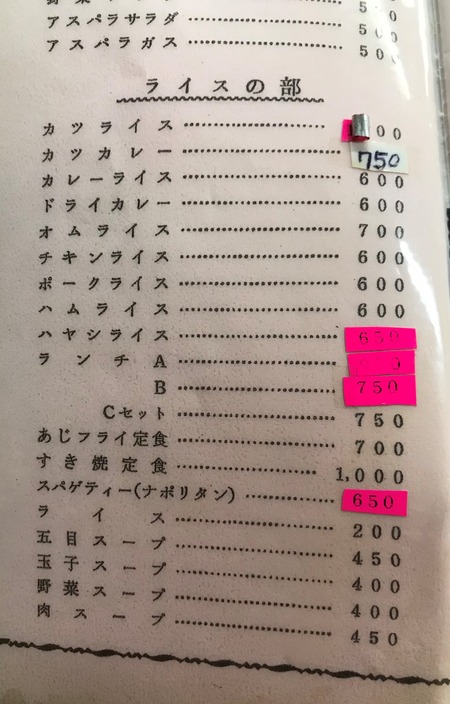 アスパラサラダ 500
アスパラガス 500
ライスの部
カツライス 00
カツカレー 750
カレーライス 600
ドライカレー 600
オムライス 700
チキンライス 600
ポークライス 600
ハムライス 600
ハヤシライス 650
ランチA 0
B 750
Cセット 750
あじフライ定食 700
すき焼定食 1,000
スパゲティー(ナポリタン) 650
ライス 200
五目スープ 450
玉子スープ 400
野菜スープ 400
肉スープ 450